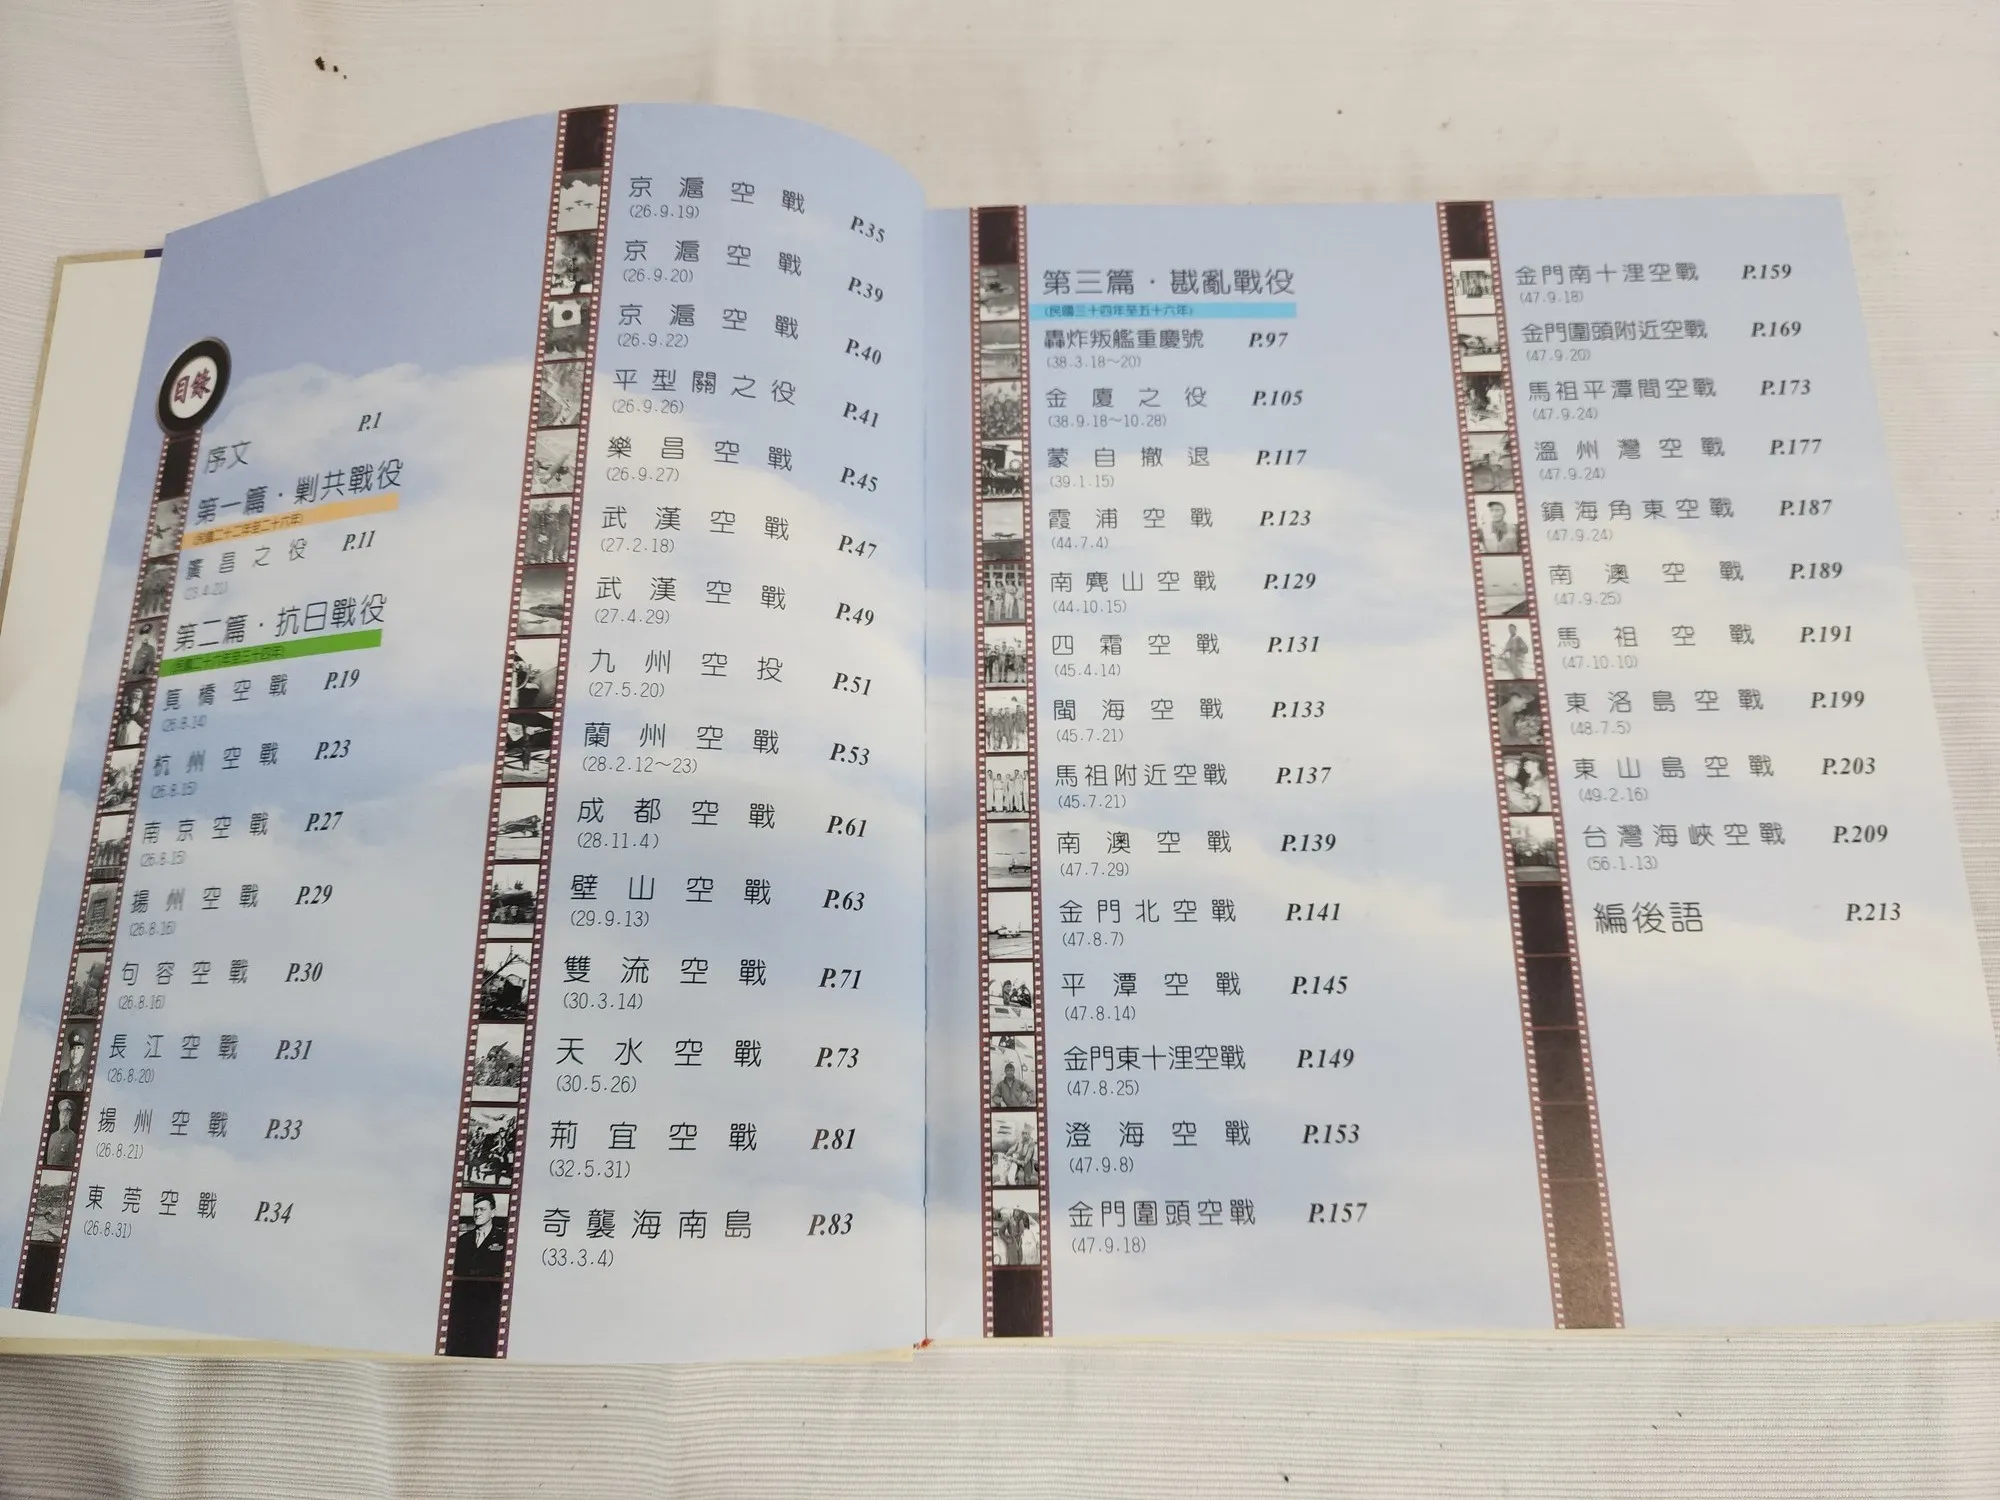 目錄
序文 P.1
第一篇・剿共戰役
(民國二十二年至二十六年)
廣昌之役 P.11
(23.4.20)
第二篇・抗日戰役
(民國二十六年至三十四年)
筧橋空戰 P.19
(26.8.14)
杭州空戰 P.23
(26.8.15)
南京空戰 P.27
(26.8.15)
揚州空戰 P.29
(26.8.16)
句容空戰 P.30
(26.8.16)
長江空戰 P.31
(26.8.20)
揚州空戰 P.33
(26.8.21)
東莞空戰 P.34
(26.8.31)
京滬空戰 P.35
(26.9.19)
京滬空戰 P.39
(26.9.20)
京滬空戰 P.40
(26.9.22)
平型關之役 P.41
(26.9.26)
樂昌空戰 P.45
(26.9.27)
武漢空戰 P.47
(27.2.18)
武漢空戰 P.49
(27.4.29)
九州空投 P.51
(27.5.20)
蘭州空戰 P.53
(28.2.12～23)
成都空戰 P.61
(28.11.4)
壁山空戰 P.63
(29.9.13)
雙流空戰 P.71
(30.3.14)
天水空戰 P.73
(30.5.26)
荊宜空戰 P.81
(32.5.31)
奇襲海南島 P.83
(33.3.4)
第三篇・戡亂戰役
(民國三十四年至五十六年)
轟炸叛艦重慶號 P.97
(38.3.18～20)
金廈之役 P.105
(38.9.18～10.28)
蒙自撤退 P.117
(39.1.15)
霞浦空戰 P.123
(44.7.4)
南麂山空戰 P.129
(44.10.15)
四霜空戰 P.131
(45.4.14)
閩海空戰 P.133
(45.7.21)
馬祖附近空戰 P.137
(45.7.21)
南澳空戰 P.139
(47.7.29)
金門北空戰 P.141
(47.8.7)
平潭空戰 P.145
(47.8.14)
金門東十浬空戰 P.149
(47.8.25)
澄海空戰 P.153
(47.9.8)
金門圍頭空戰 P.157
(47.9.18)
金門南十浬空戰 P.159
(47.9.18)
金門圍頭附近空戰 P.169
(47.9.20)
馬祖平潭間空戰 P.173
(47.9.24)
溫州灣空戰 P.177
(47.9.24)
鎮海角東空戰 P.187
(47.9.24)
南澳空戰 P.189
(47.9.25)
馬祖空戰 P.191
(47.10.10)
東洛島空戰 P.199
(48.7.5)
東山島空戰 P.203
(49.2.16)
台灣海峽空戰 P.209
(56.1.13)
編後語 P.213